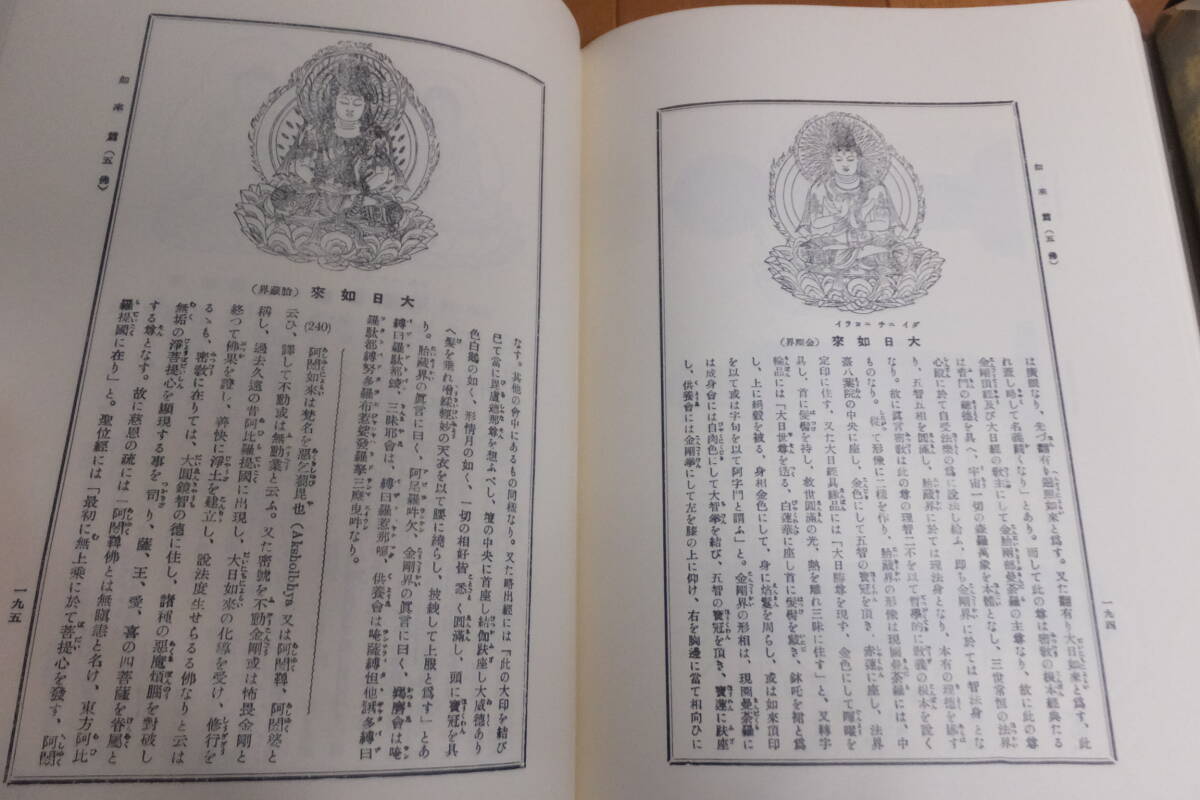 如來篇(五佛)
一九四
ダイニチニヨライ
大日如來(金剛界)
は廣眼なり、先づ飜有り遍照如來と爲す。又た飜有り大日如來と爲す、此
れ蓋し略して名義顯なり」とあり。而して此の尊は密敎の根本經典たる
金剛頂經及び大日經の敎主にして金胎兩部曼荼羅の主尊なり、故に此の尊
は普門の總德を具へ、宇宙一切の森羅萬象を本體となし、三世常恒の法界
心殿に於て自受法樂の爲に說法し給ふ、即ち金剛界に於ては智法身とな
り、五智五相を圓滿し、胎藏界に於ては理法身となり、本有の理德を
なり。故に眞言密敎は此の尊の理智二不を以て哲學的に敎義の根本を說く
ものなり。從て形像に二樣を作り、胎藏界の形像は現圖曼荼羅には、中
臺八葉院の中央に座し、金色にして五智の寶冠を頂き、赤蓮に座し、法界
定印に住す、又た大日經具緣品には「大日尊を現す、金色にして暉曜を
具し、首に髮髻を持し、救世圓滿の光、熱を離れ三昧に住す」と、又轉字
輪品には「大日世尊を送る、白蓮華に座し首に髮髻を戴き、鉢吒を裙と爲
し、上に絹縠を被る、身相金色にして、身に焰鬘を周らし、或は如來頂印
を以て或は字句を以て阿字門と謂ふ」と。金剛界の形相は、現圖曼荼羅に
は成身會には白肉色にして大智拳を結び、五智の寶冠を頂き、寶蓮に趺座
し、供養會には金剛拳にして左を膝の上に仰け、右を胸邊に當て相向ひに
如來篇(五佛)
一九五
大日如來(胎藏界)
なす。其他の會中にあるもの同樣なり。又た略出經には「此の大印を結び
已て當に毘盧遮那尊を想ふべし、壇の中央に首座し結伽趺座し大威德あり
色白鵝の如く、形情月の如く、一切の相好皆悉く圓滿し、頭に寶冠を具
へ髮を垂れ繒綵輕妙の天衣を以て腰に繞らし、披銳して上服と爲す」とあ
り。胎藏界の眞言に曰く、阿尾羅吽欠、金剛界の眞言に曰く、羯磨會は唵
縛曰羅馱都鍐、三昧耶會は、縛曰羅惹那喔、供養會は唵薩縛怛他蘖多縛曰
羅馱都縛努多羅布惹娑發羅拏三麼曳吽なり。
(240) 阿閦如來は梵名を惡乞蒭毘也(Aksholbhya)又は阿閦鞞、阿閦婆と
云ひ、譯して不動或は無動業と云ふ。又た密號を不動金剛或は怖畏金剛と
稱し、過去久遠の昔阿比羅提國に出現し、大日如來の化導を受け、修行を
終つて佛果を證し、善快に淨土を建立し、說法度生せらるる佛なりと云は
るゝも、密敎に在りては、大圓鏡智の德に住し、諸種の惡魔煩腦を對破し
無垢の淨菩提心を顯現する事を司り、薩、王、愛、喜の四菩薩を眷屬と
する尊となす。故に慈恩の疏には「阿閦鞞佛とは無瞋恚と名け、東方阿比
羅提國に在り」と。聖位經には「最初に無上乘に於て菩提心を發す、阿閦